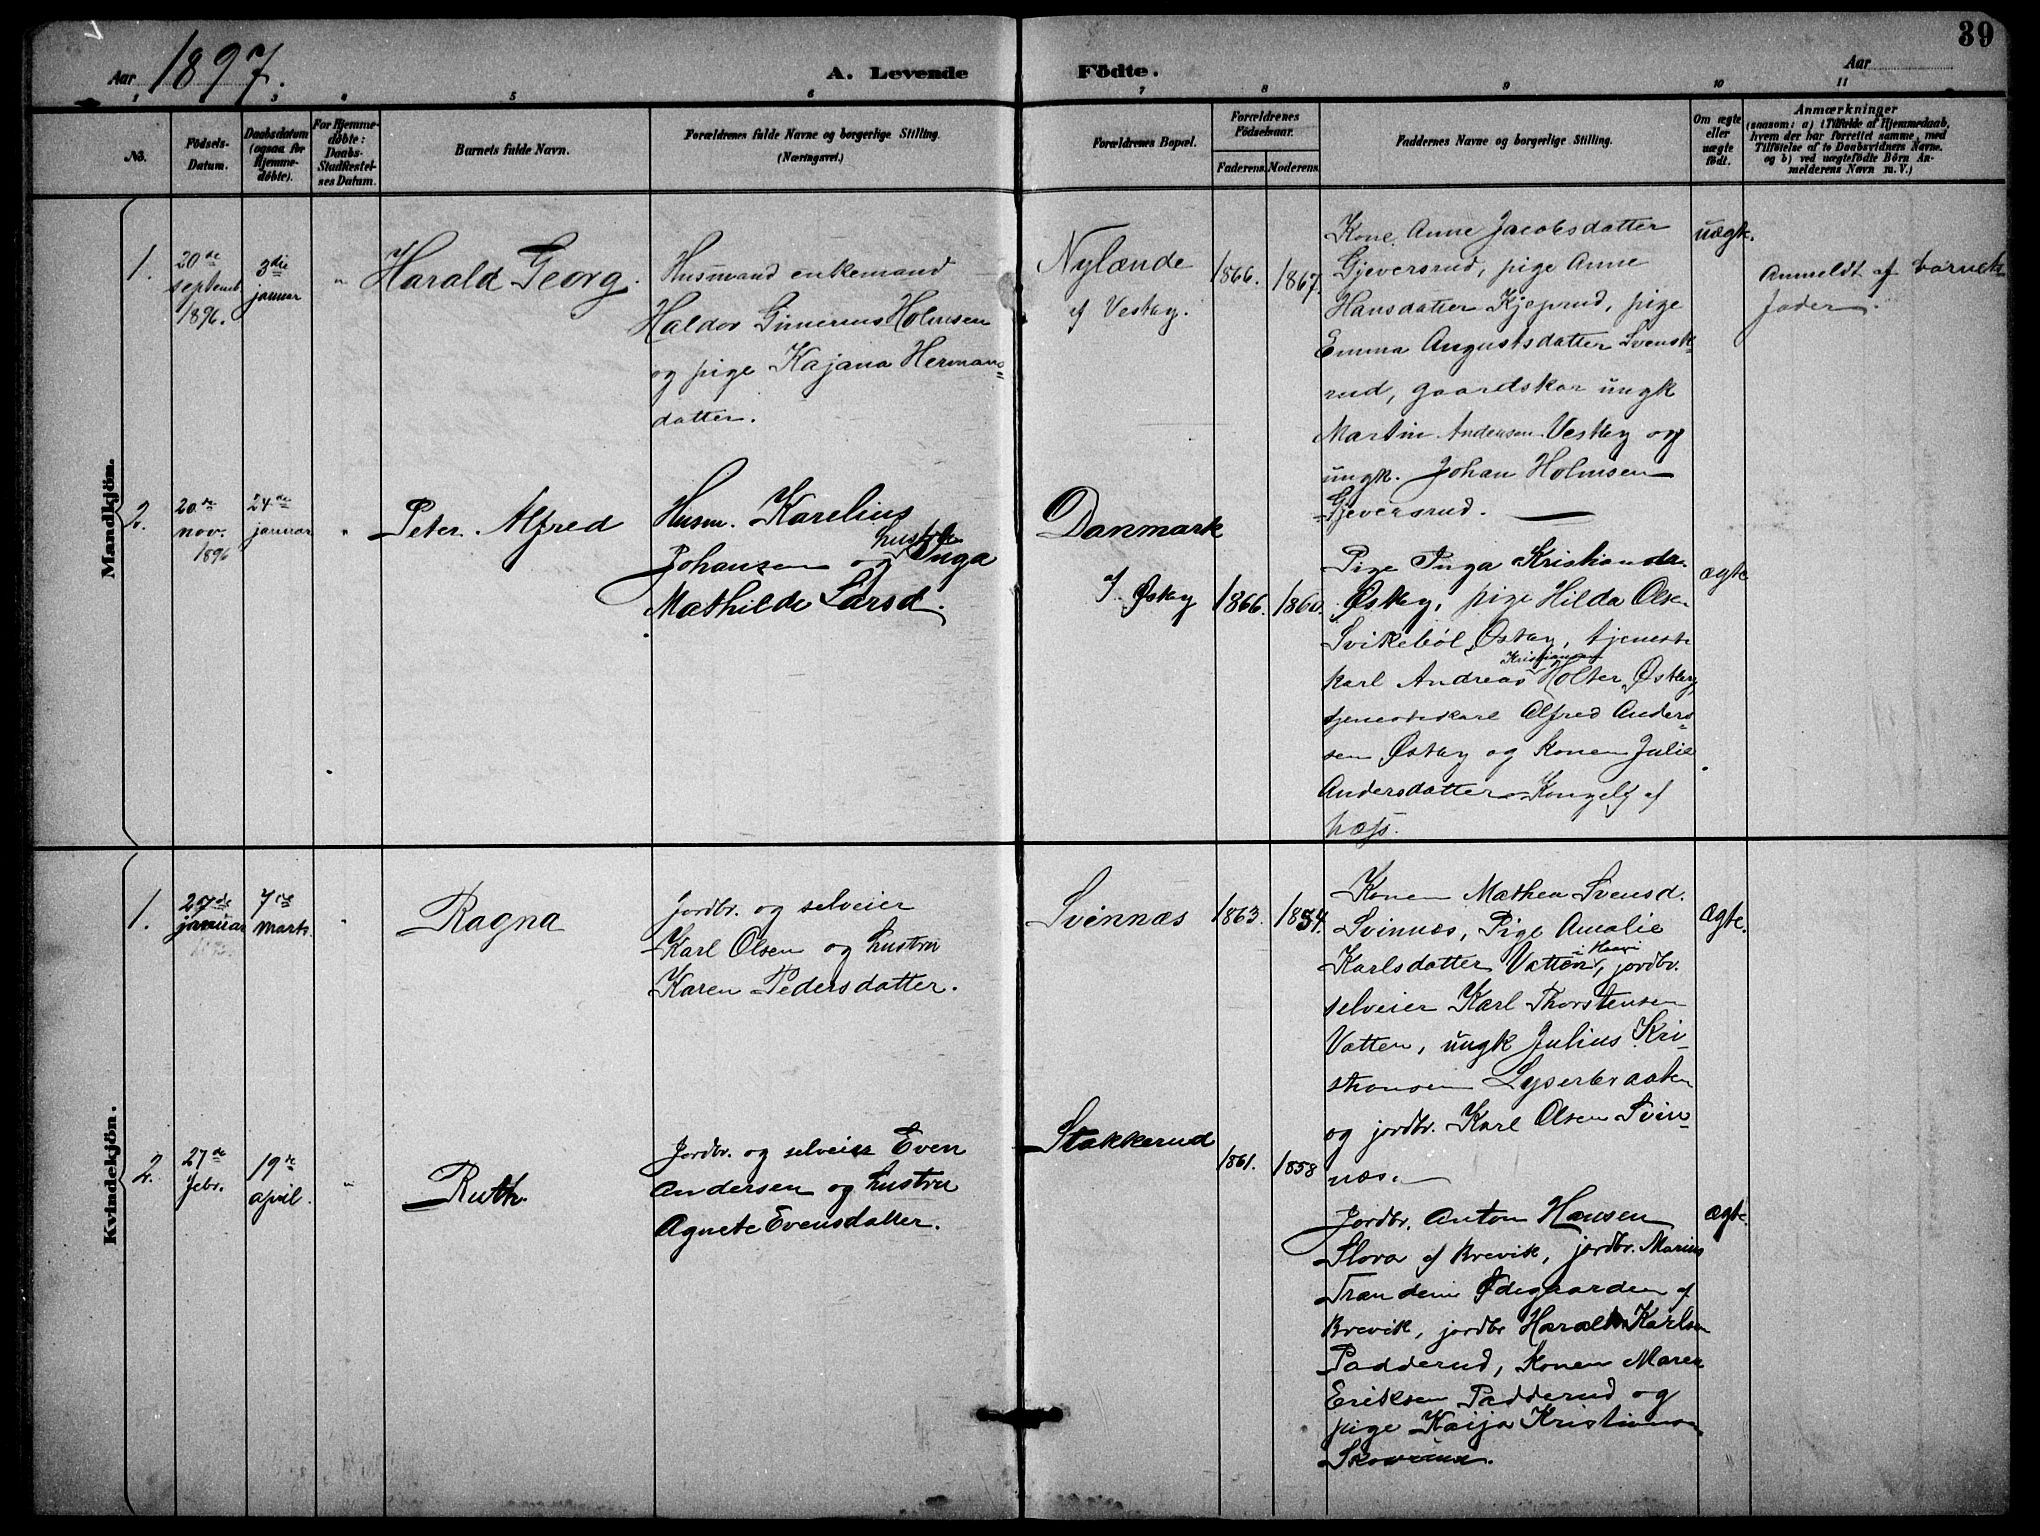 39
Aar 1897.
A. Levende Födte.
Aar
1 3 4 5 6 7 8 9 10 11
No.
Födsels-
Datum.
Daabsdatum
(ogsaa for
Hjemme-
døbte).
For Hjemme-
döbte:
Daabs-
Stadfæstel-
ses Datum.
Barnets fulde Navn.
Forældrenes fulde Navne og borgerlige Stilling.
(Næringsvei.)
Forældrenes Bopæl.
Forældrenes
Födselsaar.
Faderens. Moderens.
Faddernes Navne og borgerlige Stilling.
Om ægte
eller
uægte
födt.
Anmærkninger
(saasom: a) i Tilfælde af Hjemmedaab,
hvem der har forrettet samme, med
Tilföielse af to Daabsvidners Navne.
og b) ved uægtefödte Börn An-
melderens Navn m. V.)
Mandkjön.
1.
20de
septemb
1896.
3die
januar
"
Harald Georg.
Husmand enkemand
Haldor Holmsen
og pige Kajana Hermans=
datter.
Nylænde
af Vestby.
1866.
1867.
Kone Anne Jacobsdatter
Gjeversrud, pige Anne
Hansdatter Kjeprud, pige
Emma Augustsdatter Svensk-
rud, gaardskar ungk
Martin Andersen Vestby og
ungk. Johan Holmsen
Gjeversrud.
uægt.
Anmeldt af barnets
fader.
2.
20de
nov.
1896
24de
januar
"
Peter Alfred
Husm. Karelius
Johansen og hustru Inga
Mathilde Larsd.
Danmark
Østby
1866.
1860.
Pige Inga Kristiansdr.
Østby, pige Hilda Olsen
Svikebøl, Østby, tjeneste
karl Andreas Kristiansen Holter, Østby
tjenestekarl Alfred Anders=
sen Østby og Konen Julie
Andersdatter Kongelf af
ægte
Kvindekjön.
1.
januar
7de
marts.
"
Ragna
Jordbr. og selveier
Karl Olsen og hustru
Karen Pedersdatter.
Svinnæs
1863.
1854.
Konen Mathea Svensd.
Svinnæs, Pige Amalie
Karlsdatter Vatten, jordbr.
selveier Karl Thorstensen
Vatten, ungk Julius Kri-
stiansen Lyserbraaten
og jordbr. Karl Olsen Svin-
næs.
ægte.
2.
27de
febr.
19de
april.
"
Ruth.
Jordbr. og selveier Even
Andersen og hustru
Agnete Evensdatter.
Stakkerud
1861.
1858
Jordbr. Anton Hansen
Slora af Brevik, jordbr. Marius
Trandem Ødegaarden af
Brevik, jordbr Harald Karlsen
Padderud, Konen Maren
Eriksen Padderud og
pige Kaija Kristianson
ægte.